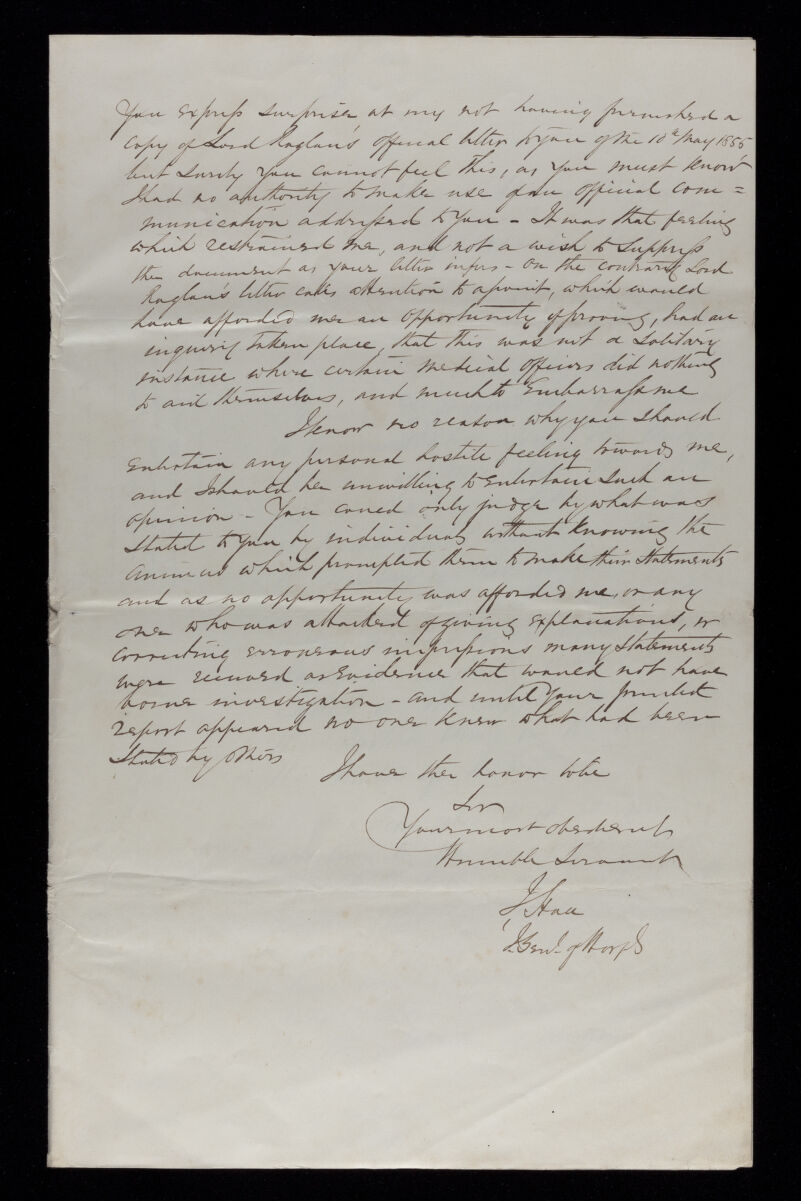 You express surprise at my not having furnished a
Copy of Lord Raglan's official letter to you of the 10th May 1855
but surely you cannot feel this, as you must know
I had no authority to make use of an official com=
munication addressed to you – It was that feeling
which restrained me, and not a wish to suppress
the document as your letter infers – On the contrary Lord
Raglan's letter calls attention to a point, which would
have afforded me an opportunity of proving, had an
inquiry taken place, that this was not a solitary
instance where certain medical officers did nothing
to aid themselves, and much to Embarrass me
I know no reason why you should
Entertain any personal hostile feeling towards me,
and I should be unwilling to entertain such an
opinion – You could only judge by what was
stated to you by individuals without knowing the
animus which prompted them to make their statements
and as no opportunity was afforded me, or any
one who was attacked of giving Explanations, or
correcting erroneous impressions many statements
were received as Evidence that would not have
borne investigation – and until your printed
report appeared no one knew what had been
stated by others
I have the honor to be
Sir
Your most obedient
Humble Servant
J. Hall
I. Genl. of Hosps